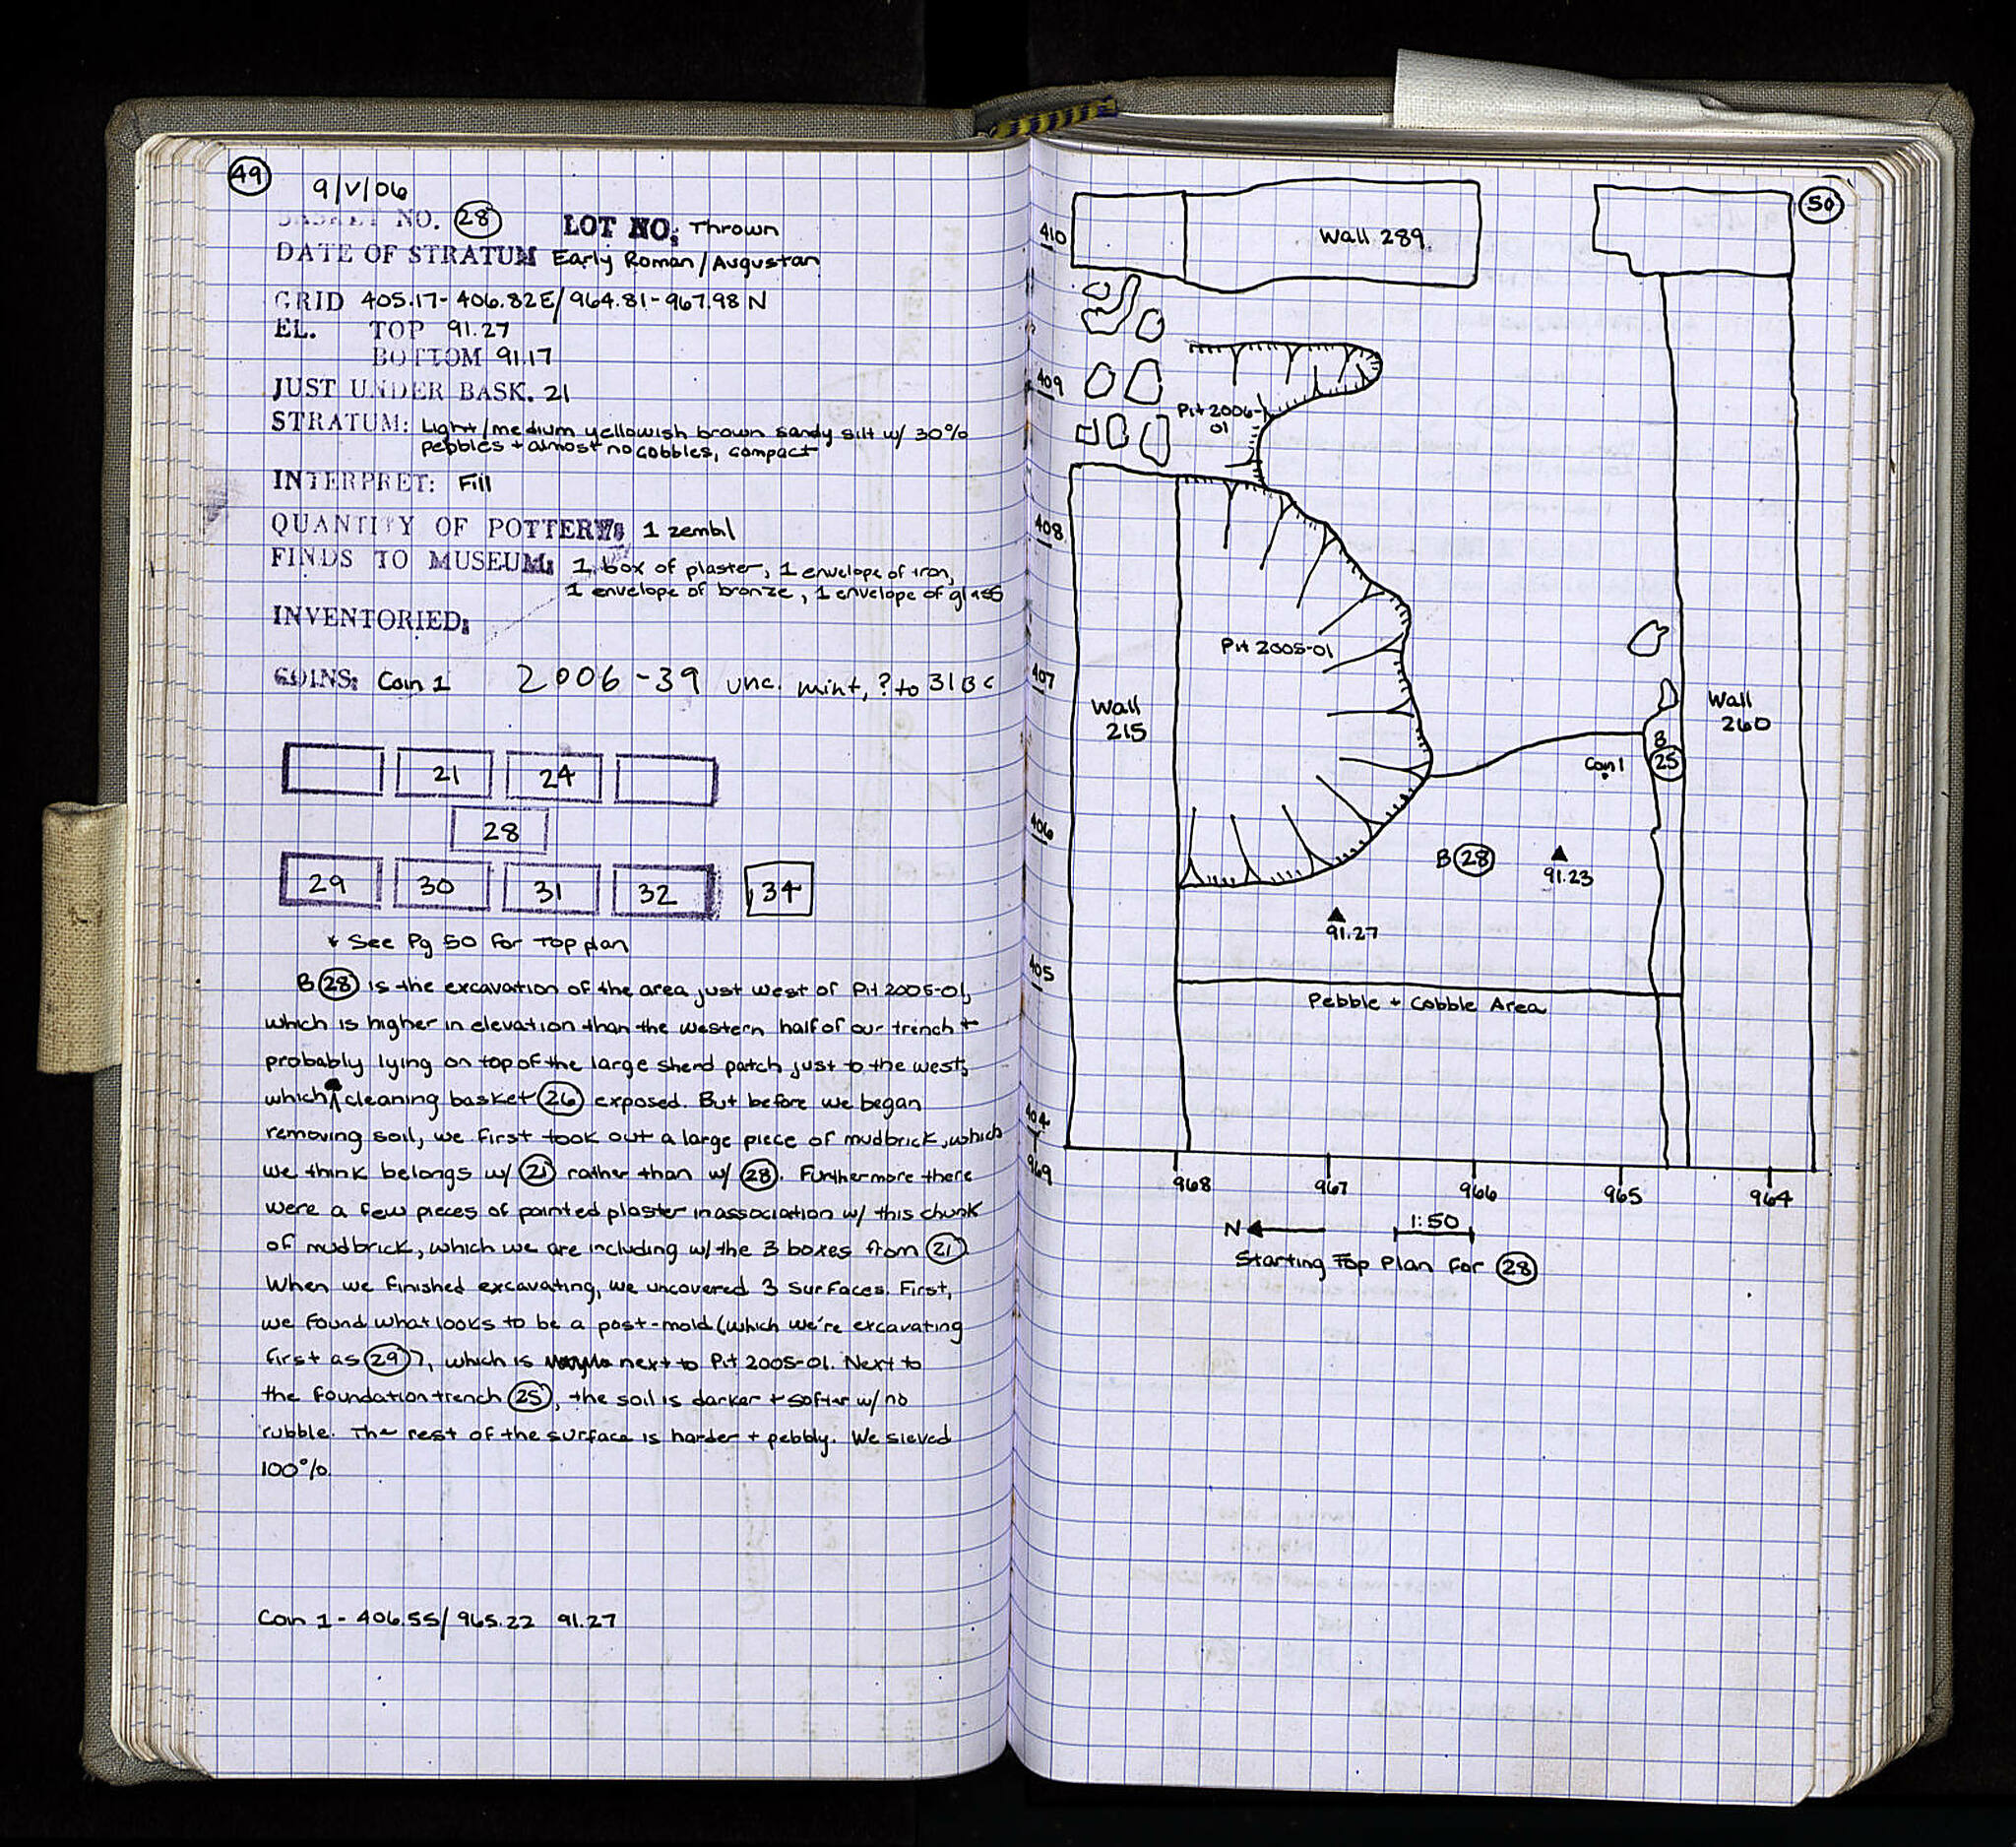 49
9/V/06
BASKET NO. 28 LOT NO: Thrown
DATE OF STRATUM Early Roman/Augustan
GRID 405.17-406.82E/964.81-967.98 N
EL. TOP 91.27
BOTTOM 91.17
JUST UNDER BASK. 21
STRATUM: Light/medium yellowish brown sandy silt w/ 30%
pebbles + almost no cobbles, compact
INTERPRET: Fill
QUANTITY OF POTTERY: 1 zembil
FINDS TO MUSEUM: 1 box of plaster, 1 envelope of iron,
1 envelope of bronze, 1 envelope of glass
INVENTORIED:
COINS: Coin 1 2006-39 unc. mint, ? to 31BC
21 24
28
29 30 31 32 34
* See Pg 50 for Top plan
B 28 is the excavation of the area just west of Pit 2005-01,
which is higher in elevation than the western half of our trench +
probably lying on top of the large sherd patch just to the west,
which cleaning basket 26 exposed. But before we began
removing soil, we first took out a large piece of mudbrick, which
we think belongs w/ 21 rather than w/ 28. Furthermore there
were a few pieces of painted plaster in association w/ this chunk
of mudbrick, which we are including w/ the 3 boxes from 21.
When we finished excavating, we uncovered 3 surfaces. First,
we found what looks to be a post-mold (which we're excavating
first as 29), which is next to Pit 2005-01. Next to
the foundation trench 25, the soil is darker + softer w/ no
rubble. The rest of the surface is harder + pebbly. We sieved
100%.
Coin 1 - 406.55/965.22 91.27
50
410
Wall 289
409
Pit 2006-
01
408
Pit 2005-01
407
Wall
215
Wall
260
B
25
Coin 1
406
B 28
91.23
91.27
405
Pebble + Cobble Area
404
969
968 967 966 965 964
N 1:50
Starting Top Plan for 28